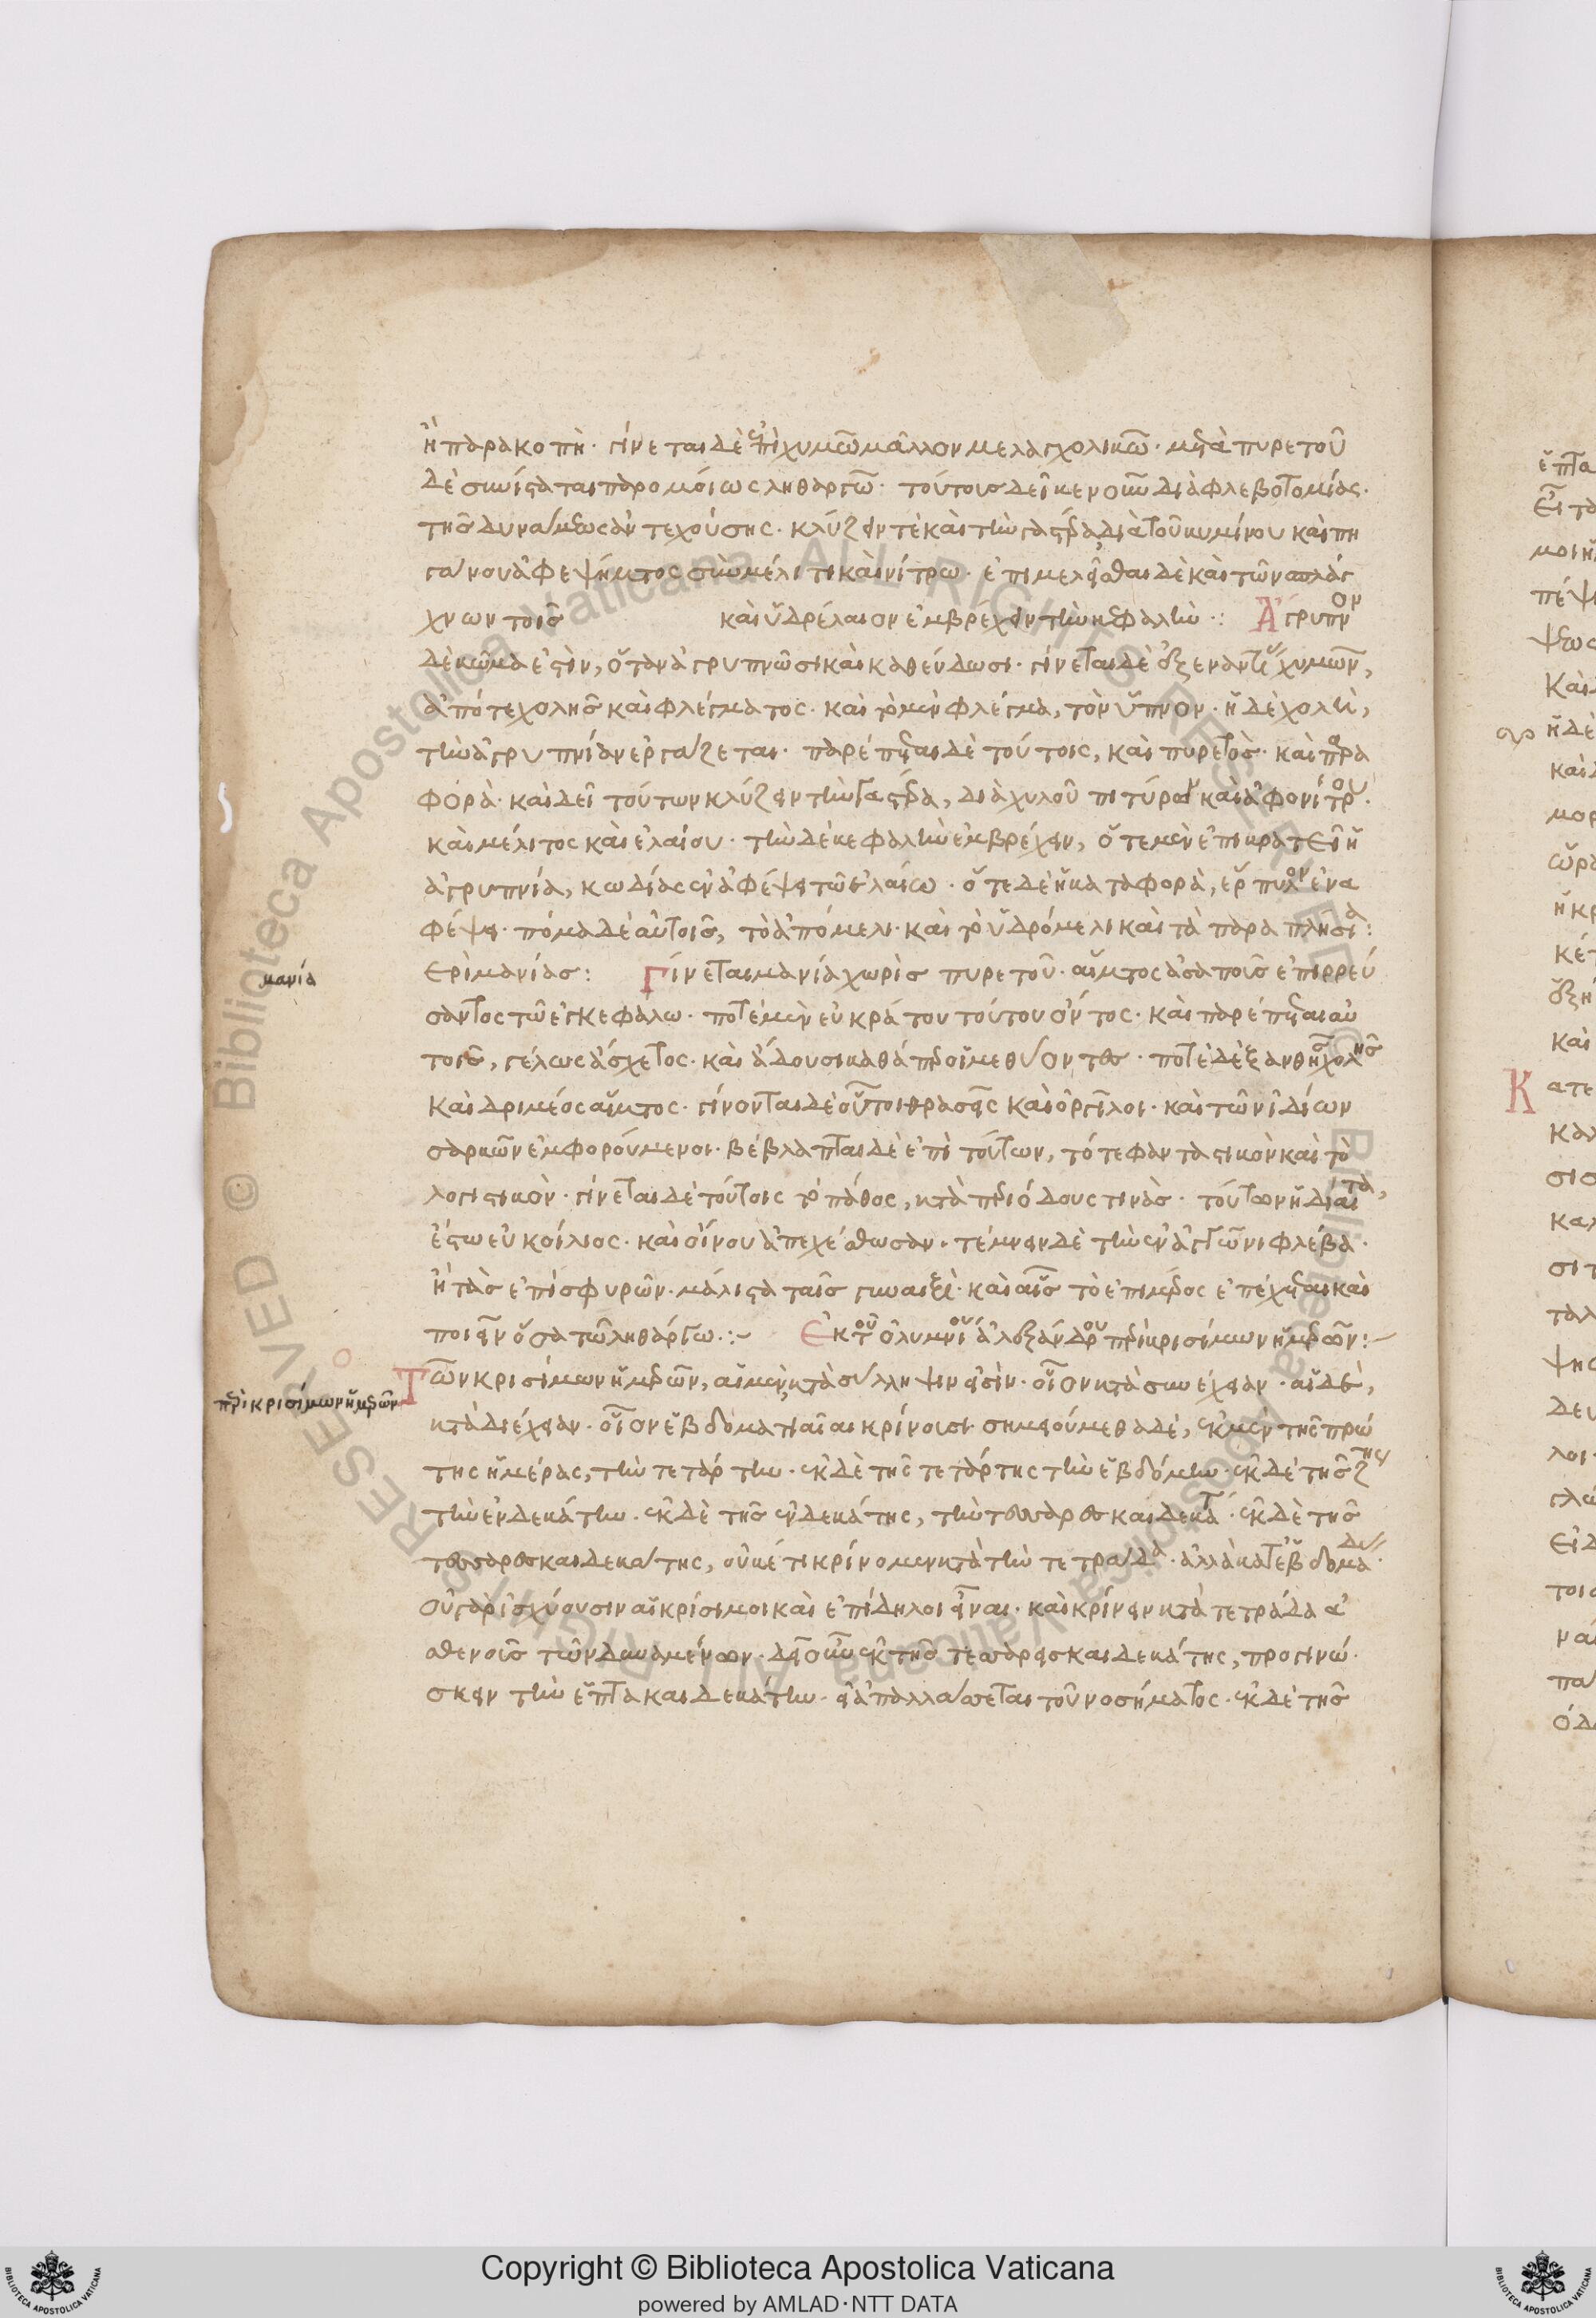 ἢ παρακοπὴ· γίνεται δὲ ἐπὶ χυμῶ μᾶλλον μελαγχολικῶ· μετὰ πυρετοῦ
δὲ συνίσταται παρομοίως ληθαργῶ· τούτους δεῖ κενοῦν διὰ φλεβοτομίας·
τῆς δυνάμεως ἀντεχούσης· κλύζειν τὲ καὶ τὴν γαστέρα, διὰ τοῦ κυμίνου καὶ πη
γάνου ἀφεψήματος σὺν μέλιτι καὶ νίτρω· ἐπιμελεῖσθαι δὲ καὶ τῶν σπλάγ
χνων τοῖς καὶ ὑδρέλαιον ἐμβρέχειν τὴν κεφαλὴν·: Ἄγρυπνον
δὲ κῶμα ἐστὶν, ὅταν ἀγρυπνῶσι καὶ καθεύδωσι· γίνεται δὲ ἐξ ἐναντίων χυμῶν,
ἀπό τε χολῆς καὶ φλέγματος· καὶ τὸ μὲν φλέγμα, τὸν ὕπνον· ἡ δὲ χολὴ,
τὴν ἀγρυπνίαν ἐργάζεται· παρέπεται δὲ τούτοις, καὶ πυρετὸς· καὶ παρα
φορὰ· καὶ δεῖ τούτων κλύζειν τὴν γαστέρα, διὰ χυλοῦ πιτύρων καὶ ἀφονίτρου·
καὶ μέλιτος καὶ ἐλαίου· τὴν δὲ κεφαλὴν ἐμβρέχειν, ὅτε μὲν ἐπικρατεῖ ἡ
ἀγρυπνία, κωδίας ἐναφέψει τῶ ἐλαίω· ὅτε δὲ ἡ καταφορὰ, ἕρπυλον ἐνα
φέψει· πόμα δὲ αὐτοῖς, τὸ ἀπόμελι· καὶ τὸ ὑδρόμελι καὶ τὰ παραπλήσια:
ερὶ μανίας: Γίνεται μανία χωρὶς πυρετοῦ· αἵματος ἀσαποῦς ἐπιρρεύ
σαντος τῶ ἐγκεφάλω· ποτὲ μὲν εὐκράτου τούτου ὄντος· καὶ παρέπεται αὐ
τοῖς, γέλως ἄσχετος· καὶ ἄδουσι καθάπερ οἱ μεθύοντες· ποτὲ δὲ ξανθῆς χολῆς
καὶ δριμέος αἵματος· γίνονται δὲ οὗτοι θρασεῖς καὶ ὀργίλοι· καὶ τῶν ἰδίων
σαρκῶν ἐμφορούμενοι· βέβλαπται δὲ ἐπὶ τούτων, τό τε φανταστικὸν καὶ τὸ
λογιστικὸν· γίνεται δὲ τούτοις τὸ πάθος, κατὰ περιόδους τινὰς· τούτων ἡ δίαιτα,
ἔστω εὐκοίλιος· καὶ οἴνου ἀπεχέσθωσαν· τέμνειν δὲ τὴν ἐν ἀγκῶνι φλέβα·
ἢ τὰς ἐπὶ σφυρῶν· μάλιστα ταῖς γυναιξὶ· καὶ αὗταις τὸ ἐπιμερος ἐπέχεται καὶ
ποιεῖν ὅσα τῶ ληθάργω·:- Ἐκ τοῦ ὀλυμνίου ἀλεξάνδρου περὶ κρισίμων ἡμερῶν:-
Τῶν κρισίμων ἡμερῶν, αἱ μὲν, κατὰ σύλληψιν εἰσὶν· οἷον κατὰ συνέχειαν· αἱ δὲ,
κατὰ διέχειαν· οἷον ἑβδοματιαῖαι κρίνοισι· σημειούμεθα δὲ, ἐκ μὲν τῆς πρώ
της ἡμέρας, τὴν τετάρτην· ἐκ δὲ τῆς τετάρτης τὴν ἑβδόμην· ἐκ δὲ τῆς ζης
τὴν ἑνδεκάτην· ἐκ δὲ τῆς ἑνδεκάτης, τὴν τεσσαρεσκαιδεκάτ· ἐκ δὲ τῆς
τεσσαρεσκαιδεκάτης, οὐκέτι κρίνομεν κατὰ τὴν τετράδα· ἀλλὰ κατ' ἑβδομάδα·
οὐ γὰρ ἰσχύουσιν αἱ κρίσιμοι καὶ ἐπίδηλοι εἶναι· καὶ κρίνειν κατὰ τετράδα ἀ
σθενοῦς τῶν δυναμένων· δεῖ οὖν ἐκ τῆς τεσσαρεσκαιδεκάτης, προγινώ
σκειν τὴν ἑπτακαιδεκάτην· εἰ ἀπαλλάσσεται τοῦ νοσήματος· ἐκ δὲ τῆς
μανία
περὶ κρισίμων ἡμερῶν
Copyright © Biblioteca Apostolica Vaticana
powered by AMLAD·NTT DATA